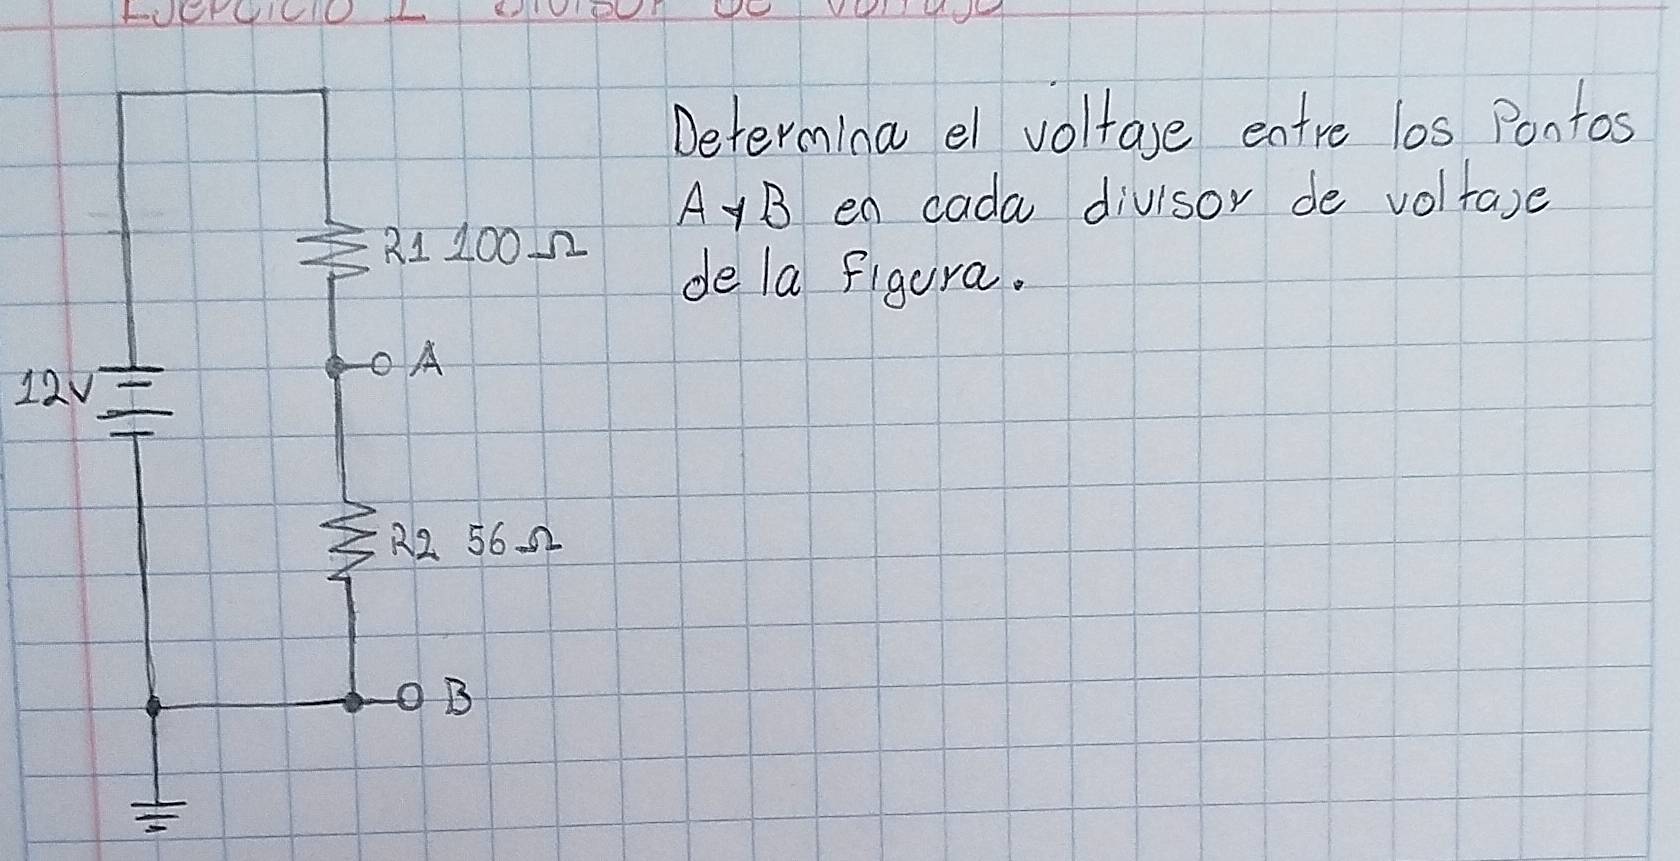 Ejercicio 1 Divisor de voltaje
Determina el voltaje entre los Pontos
A y B en cada divisor de voltaje
de la Figura.
R1 100 Ω
A
12v
R2 56 Ω
B